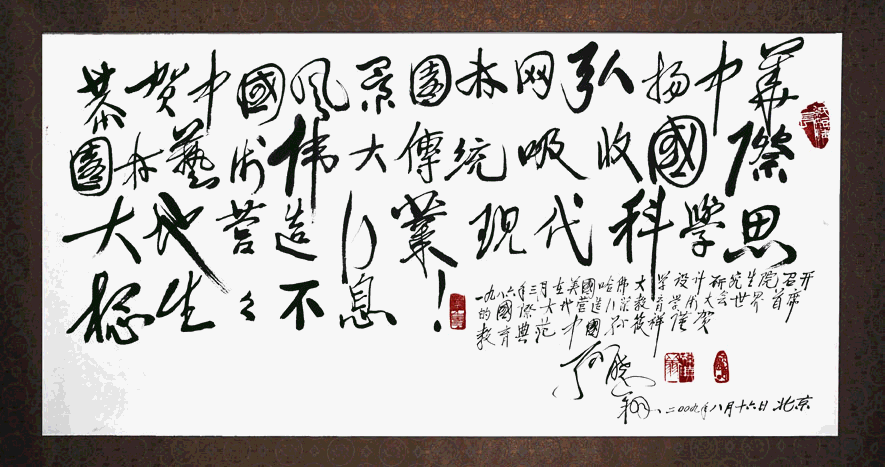 恭贺中國风景園林网弘扬中華
園林藝术伟大傳统吸收國際
大地营造行業现代科學思
想生々不息！
一九八六年三月在美國哈佛大學设计研究生院召开
的國際大地营造行業教育学术大会世界首席
教育典范 中國孙筱祥谨贺
二〇〇九年八月十六日北京